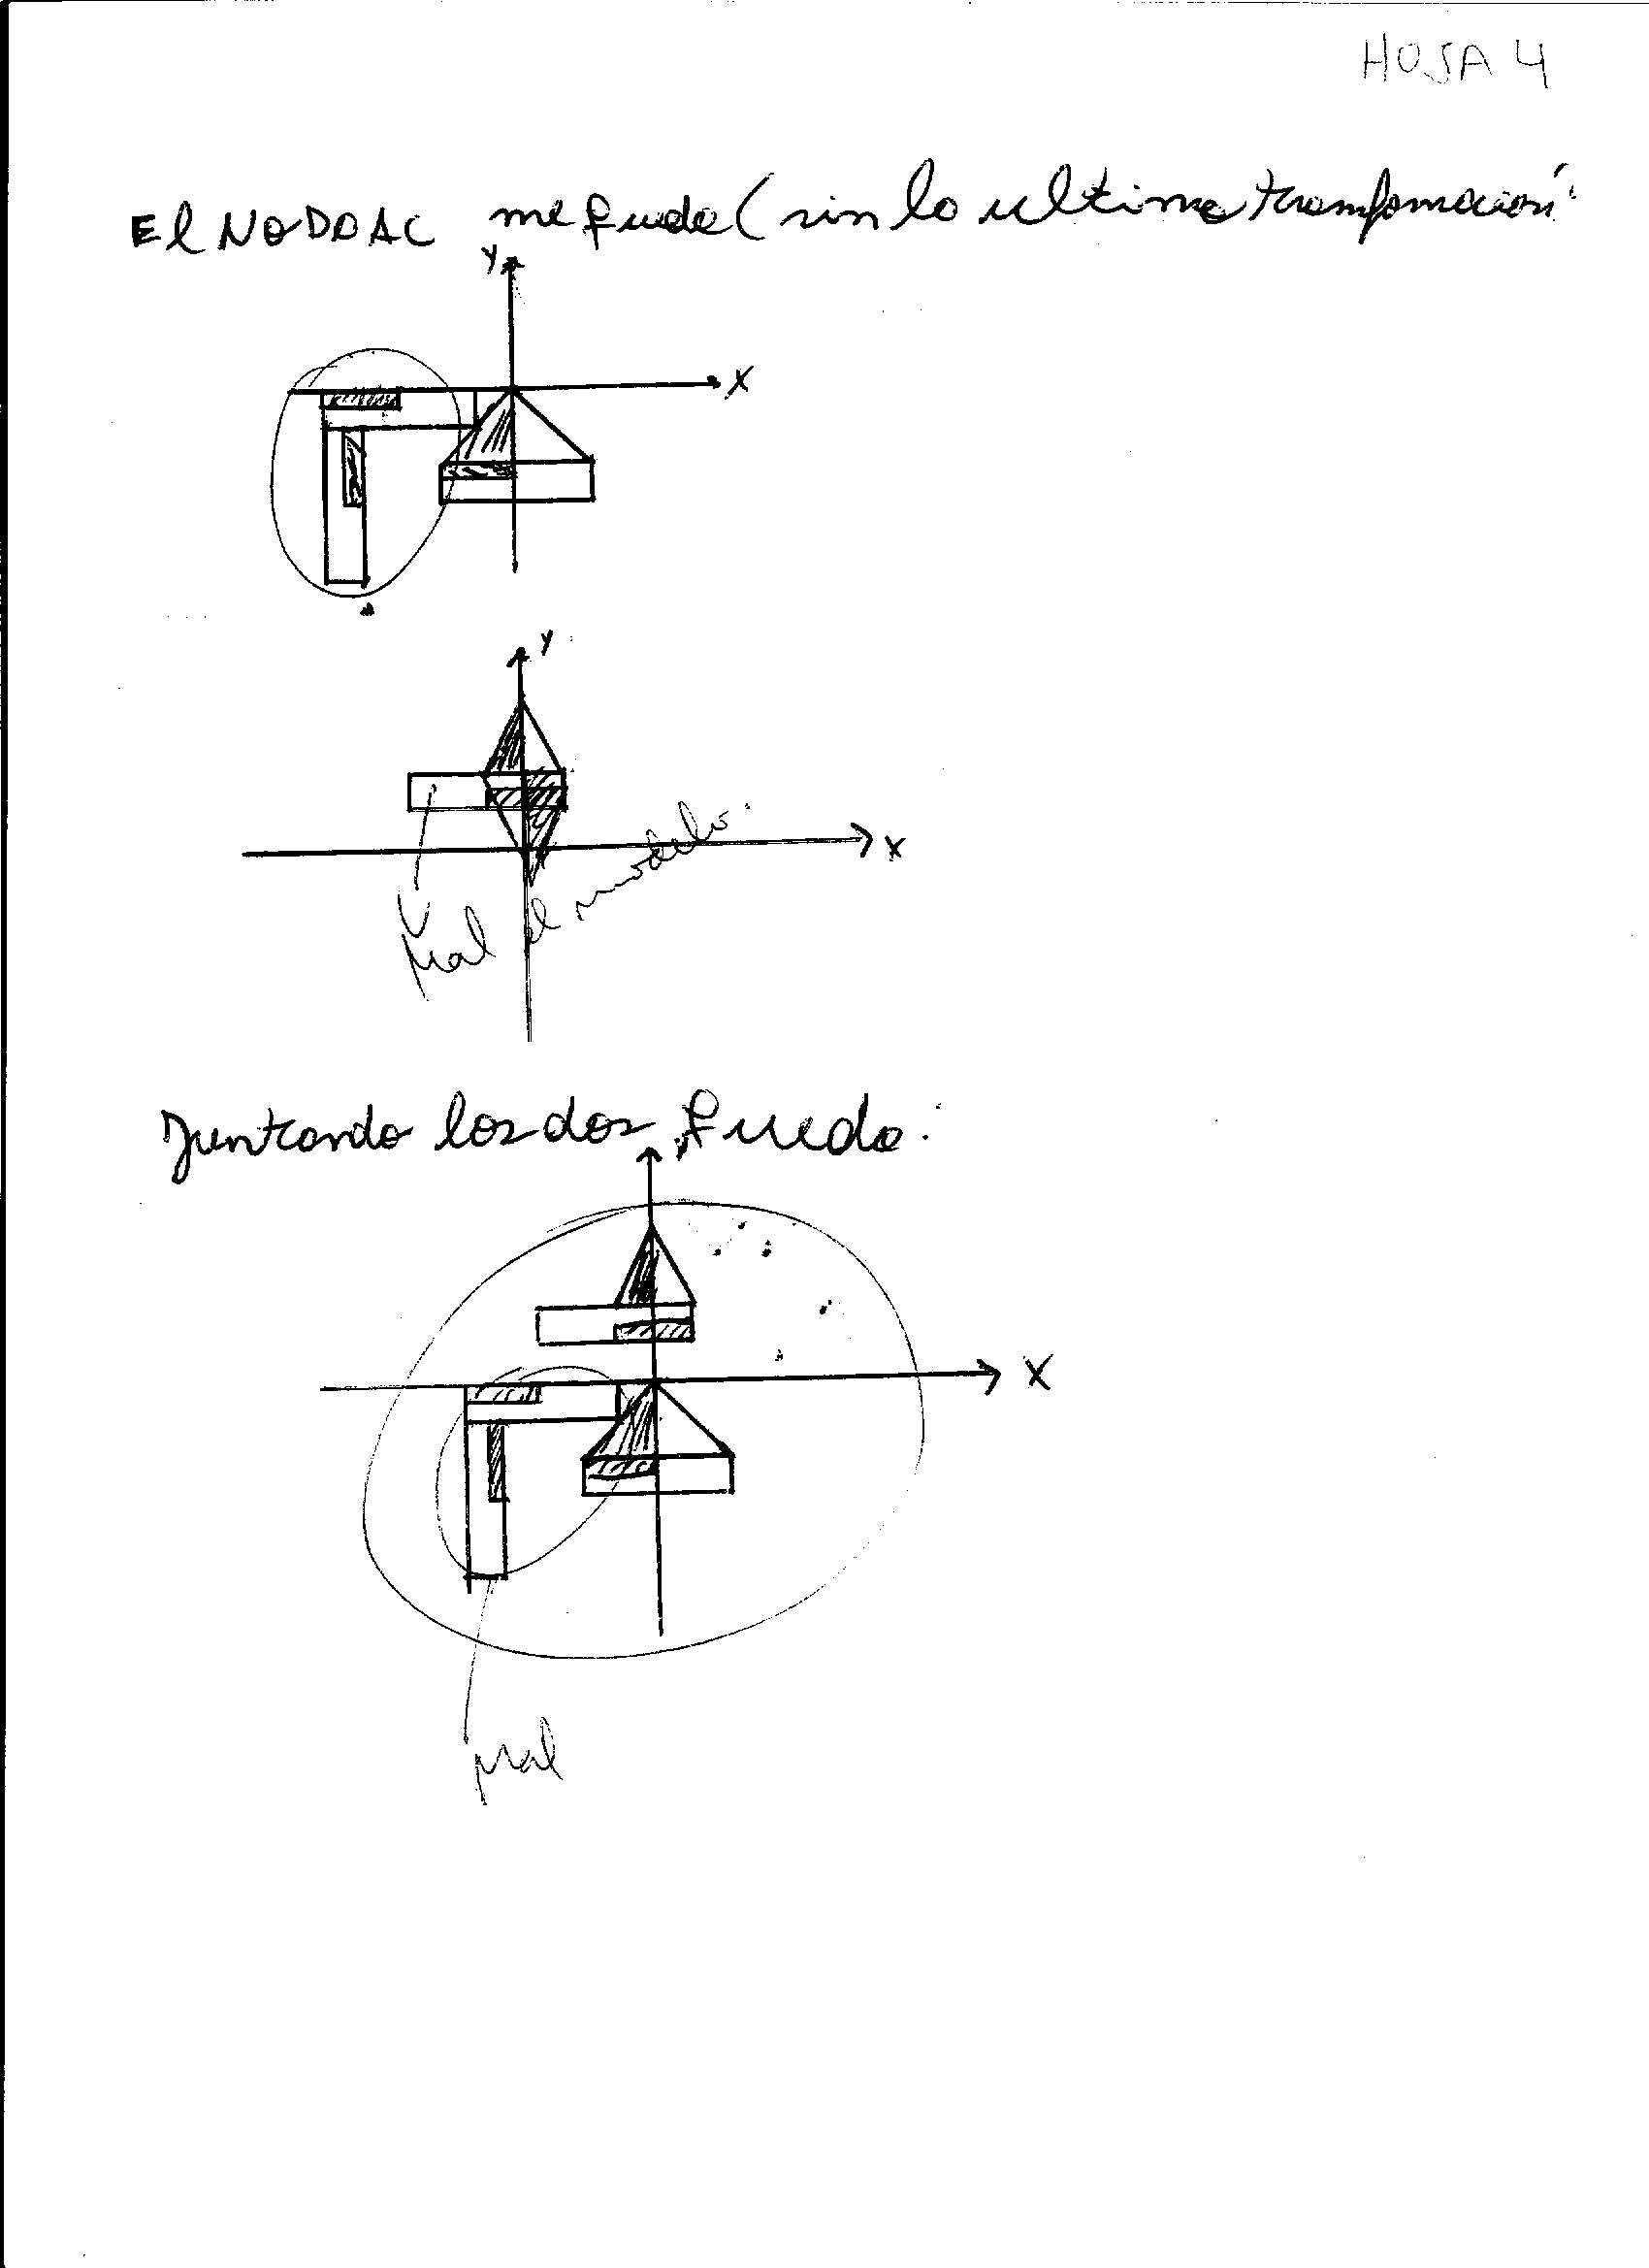 HOJA 4
El NODO AC me queda (sin la ultima transformación:
Y
X
Y
X
mal el modelo.
Juntando los dos queda:
Y
X
mal